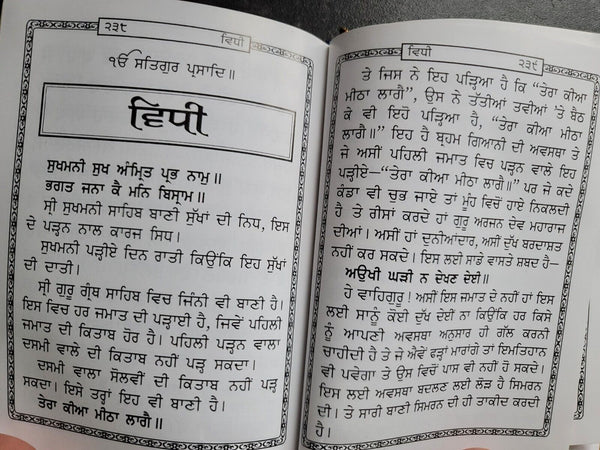 ੨੩੮
ਵਿਧੀ
ੴ ਸਤਿਗੁਰ ਪ੍ਰਸਾਦਿ॥
ਵਿਧੀ
ਸੁਖਮਨੀ ਸੁਖ ਅੰਮ੍ਰਿਤ ਪ੍ਰਭ ਨਾਮੁ॥
ਭਗਤ ਜਨਾ ਕੈ ਮਨਿ ਬਿਸ੍ਰਾਮ॥
ਸ੍ਰੀ ਸੁਖਮਨੀ ਸਾਹਿਬ ਬਾਣੀ ਸੁੱਖਾਂ ਦੀ ਨਿਧ, ਇਸ
ਦੇ ਪੜ੍ਹਨ ਨਾਲ ਕਾਰਜ ਸਿਧ।
ਸੁਖਮਨੀ ਪੜ੍ਹੀਏ ਦਿਨ ਰਾਤੀ ਕਿਉਂਕਿ ਇਹ ਸੁੱਖਾਂ
ਦੀ ਦਾਤੀ।
ਸ੍ਰੀ ਗੁਰੂ ਗ੍ਰੰਥ ਸਾਹਿਬ ਵਿਚ ਜਿੰਨੀ ਵੀ ਬਾਣੀ ਹੈ।
ਇਸ ਵਿਚ ਹਰ ਜਮਾਤ ਦੀ ਪੜ੍ਹਾਈ ਹੈ, ਜਿਵੇਂ ਪਹਿਲੀ
ਜਮਾਤ ਦੀ ਕਿਤਾਬ ਹੋਰ ਹੈ। ਪਹਿਲੀ ਪੜ੍ਹਨ ਵਾਲਾ
ਦਸਮੀ ਵਾਲੇ ਦੀ ਕਿਤਾਬ ਨਹੀਂ ਪੜ੍ਹ ਸਕਦਾ।
ਦਸਮੀ ਵਾਲਾ ਸੋਲਵੀਂ ਦੀ ਕਿਤਾਬ ਨਹੀਂ ਪੜ੍ਹ
ਸਕਦਾ। ਇਸੇ ਤਰ੍ਹਾਂ ਇਹ ਵੀ ਬਾਣੀ ਹੈ।
ਤੇਰਾ ਕੀਆ ਮੀਠਾ ਲਾਗੈ॥
ਵਿਧੀ
੨੩੯
ਤੇ ਜਿਸ ਨੇ ਇਹ ਪੜ੍ਹਿਆ ਹੈ ਕਿ “ਤੇਰਾ ਕੀਆ
ਮੀਠਾ ਲਾਗੈ”, ਉਸ ਨੇ ਤੱਤੀਆਂ ਤਵੀਆਂ 'ਤੇ ਬੈਠ
ਕੇ ਵੀ ਇਹੋ ਪੜ੍ਹਿਆ ਹੈ, “ਤੇਰਾ ਕੀਆ ਮੀਠਾ
ਲਾਗੈ॥” ਇਹ ਹੈ ਬ੍ਰਹਮ ਗਿਆਨੀ ਦੀ ਅਵਸਥਾ ਤੇ
ਜੇ ਅਸੀਂ ਪਹਿਲੀ ਜਮਾਤ ਵਿਚ ਪੜ੍ਹਨ ਵਾਲੇ ਇਹ
ਪੜ੍ਹੀਏ—“ਤੇਰਾ ਕੀਆ ਮੀਠਾ ਲਾਗੈ॥” ਪਰ ਜੇ ਕਦੇ
ਕੰਡਾ ਵੀ ਚੁਭ ਜਾਏ ਤਾਂ ਮੂੰਹ ਵਿਚੋਂ ਹਾਏ ਨਿਕਲਦੀ
ਹੈ ਤੇ ਰੀਸਾਂ ਕਰਦੇ ਹਾਂ ਗੁਰੂ ਅਰਜਨ ਦੇਵ ਮਹਾਰਾਜ
ਦੀਆਂ। ਅਸੀਂ ਹਾਂ ਦੁਨੀਆਂਦਾਰ, ਅਸੀਂ ਦੁੱਖ ਬਰਦਾਸ਼ਤ
ਨਹੀਂ ਕਰ ਸਕਦੇ। ਇਸ ਲਈ ਸਾਡੇ ਵਾਸਤੇ ਸ਼ਬਦ ਹੈ—
ਅਉਖੀ ਘੜੀ ਨ ਦੇਖਣ ਦੇਈ॥
ਹੇ ਵਾਹਿਗੁਰੂ! ਅਸੀਂ ਇਸ ਜਮਾਤ ਦੇ ਨਹੀਂ ਹਾਂ ਇਸ
ਲਈ ਸਾਨੂੰ ਕੋਈ ਦੁੱਖ ਦੇਈਂ ਨਾ ਕਿਉਂਕਿ ਹਰ ਕਿਸੇ
ਨੂੰ ਆਪਣੀ ਅਵਸਥਾ ਅਨੁਸਾਰ ਹੀ ਗੱਲ ਕਰਨੀ
ਚਾਹੀਦੀ ਹੈ ਤੇ ਜੇ ਐਵੇਂ ਫੜ੍ਹਾਂ ਮਾਰਾਂਗੇ ਤਾਂ ਇਮਤਿਹਾਨ
ਵੀ ਪਵੇਗਾ ਤੇ ਉਸ ਵਿਚੋਂ ਪਾਸ ਵੀ ਨਹੀਂ ਹੋ ਸਕਦੇ।
ਇਸ ਲਈ ਅਵਸਥਾ ਬਦਲਣ ਲਈ ਲੋੜ ਹੈ ਸਿਮਰਨ
ਦੀ। ਤੇ ਸਾਰੀ ਬਾਣੀ ਸਿਮਰਨ ਦੀ ਹੀ ਤਾਕੀਦ ਕਰਦੀ
ਹੈ।